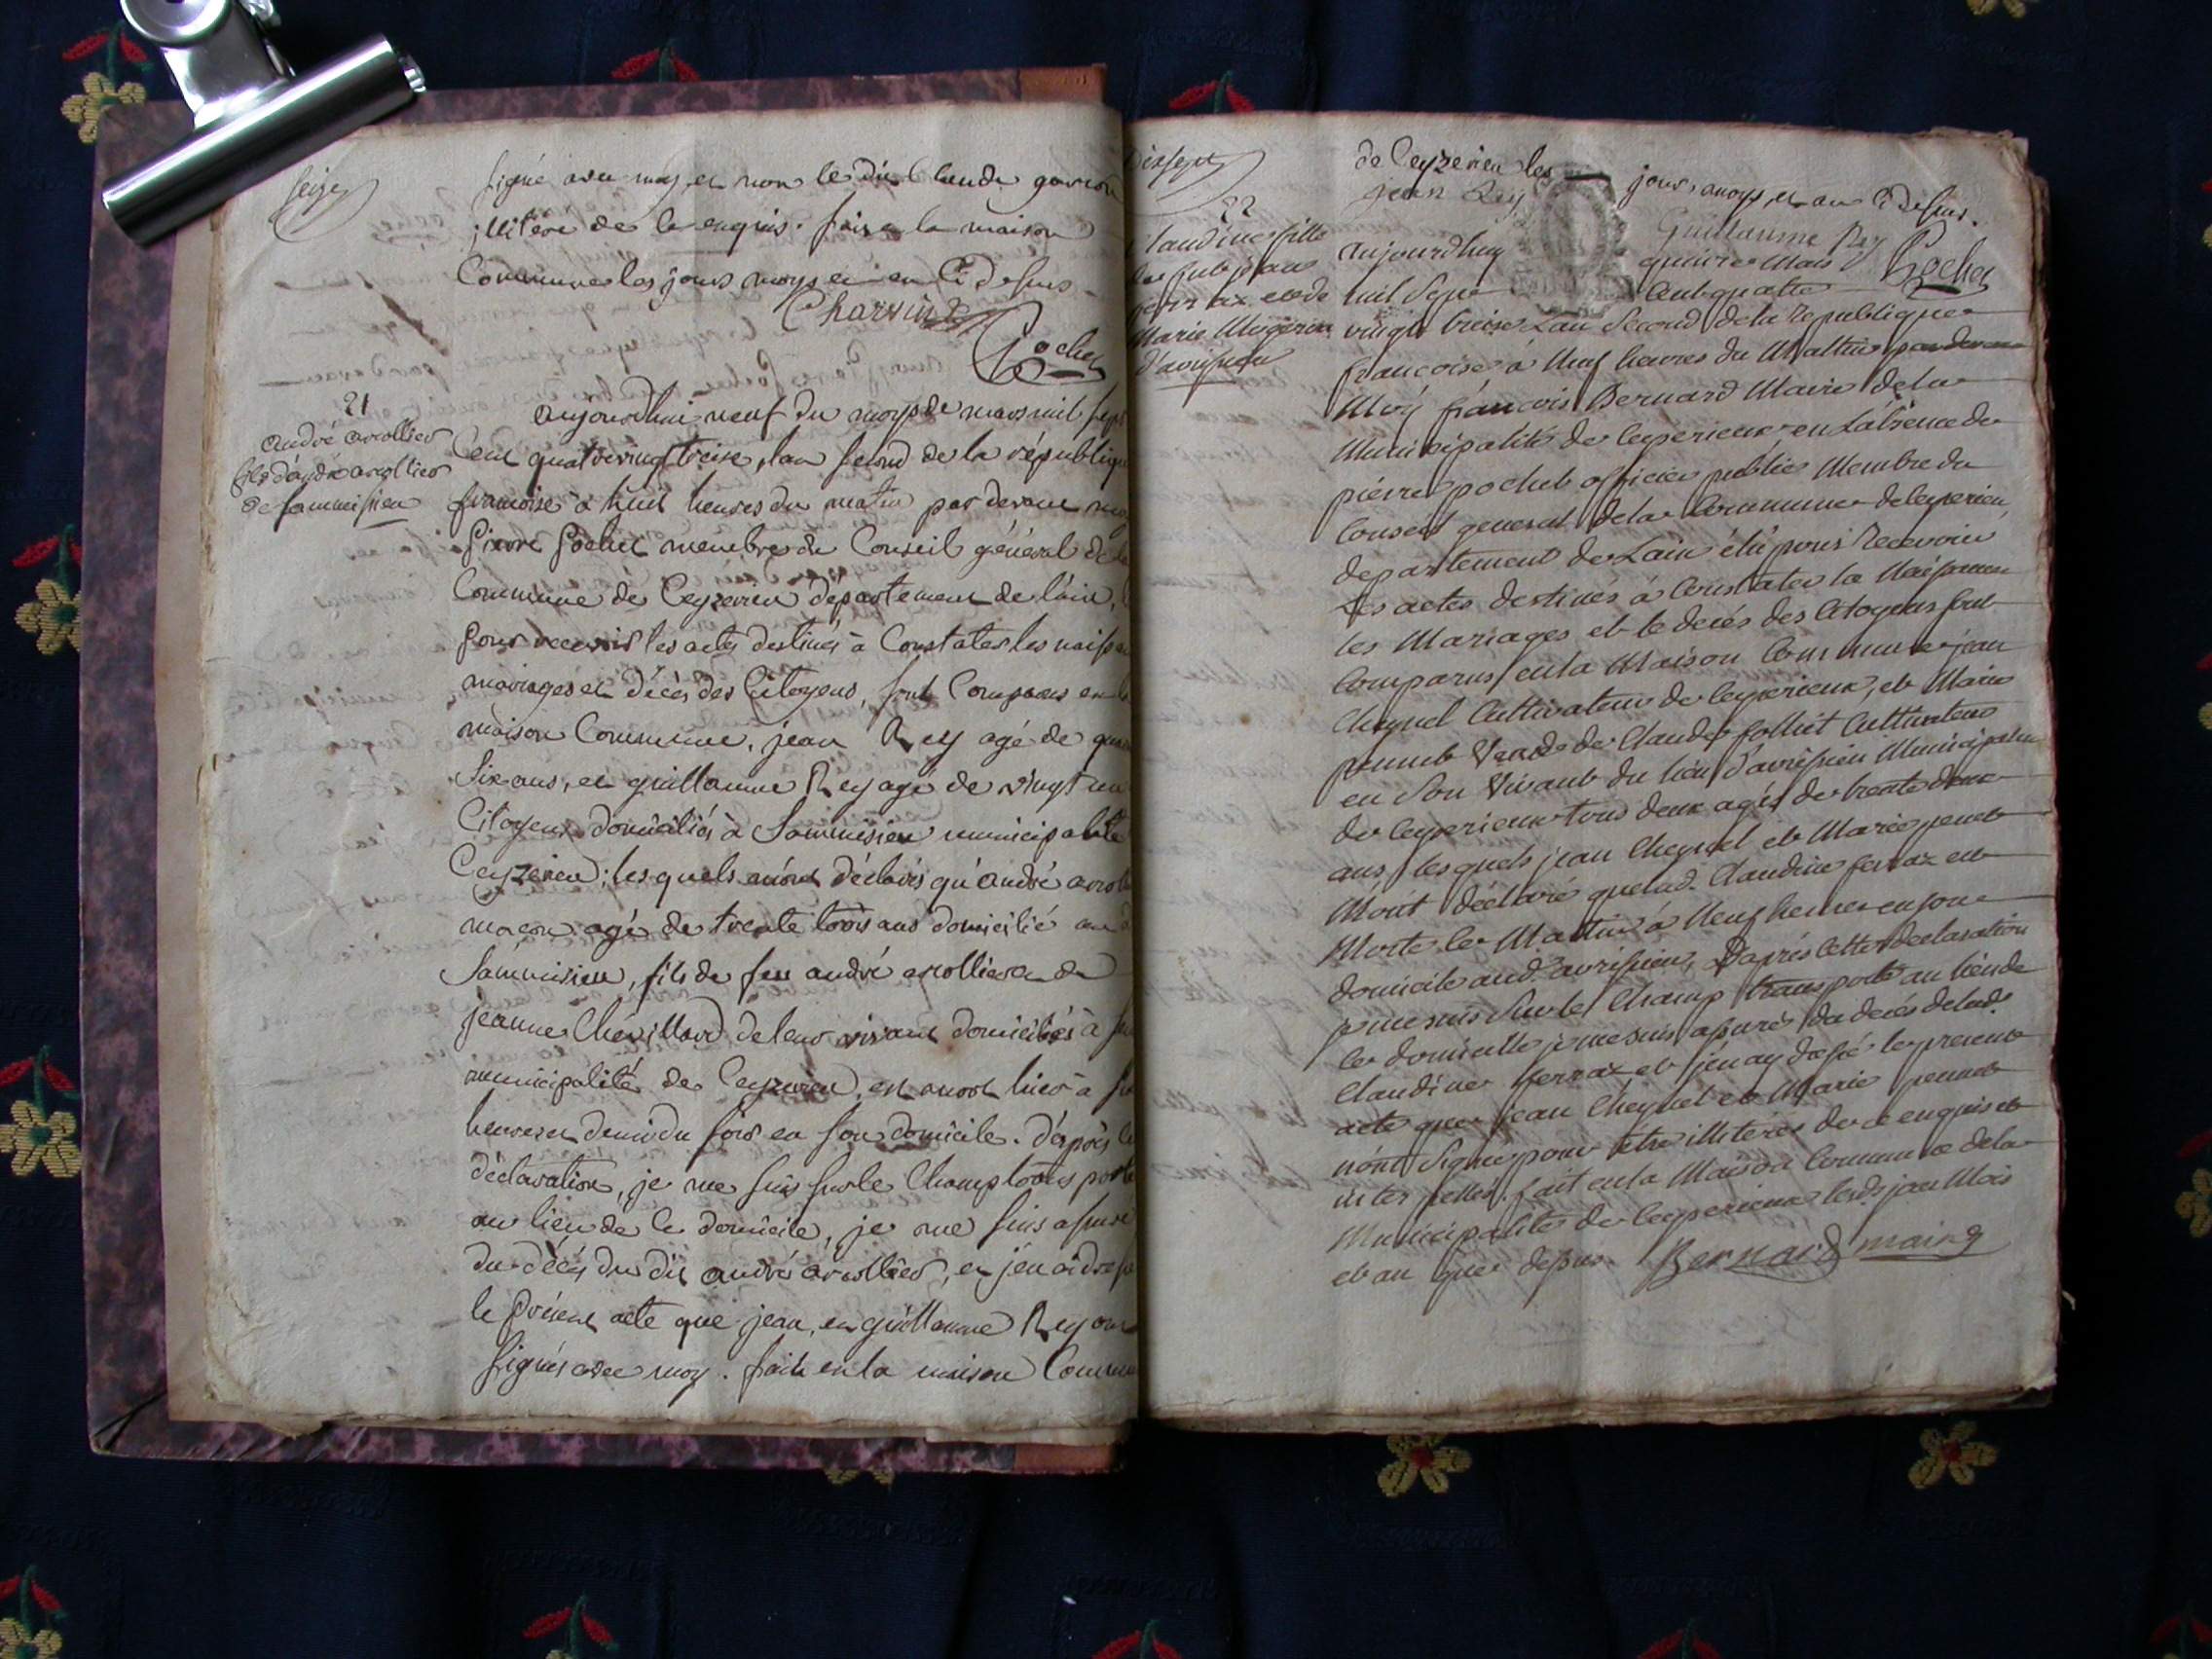 seize
signé avec moy, et non le dit Claude
illitéré de ce enquis. fait a la maison
Commune les jours moys et an Ci dessus
Charvin
Pochet
21
andré arollier
fils d'andré arollier
de sammisieu
aujourdhui neuf du moys de mars mil sept
Cent quatrevingt treize, lan second de la républiq
francoise à huit heures du matin par devant moy
Pierre Pochet membre du Conseil général de la
Commune de Ceyzerieu département de l'ain,
pour recevoir les actes destinés à Constater les naissan
mariages et décès des Citoyens, sont Comparus en la
maison Commune, jean Rey agé de
six ans, et guillaume Rey agé de vingt
Citoyens domiciliés à Sammisieu municipalité
Ceyzerieu; lesquels m'ont déclarés qu'andré aroll
macon agé de trente trois ans domicilié au d
Sammisieu, fils de feu andré arollier et de
jeanne Chevillard de leur vivant domiciliés à
municipalité de Ceyzerieu, est mort hier à
heures et demi du soir en son domicile. d'après
déclaration, je me suis sur le Champ transporté
au lieu de ce domicile, je me suis assuré
du décès du dit andré arollier, et j'en ai dressé
le présent acte que jean, et guillaume Rey ont
signés avec moy. fait en la maison Commun
dixsept
de Ceyzerieu les jour, moys, et an Ci dessus.
jean Rey Guillaume Rey Pochet
22
Claudine fille
ferraz et de
Marie
d'avrissieu
aujourdhuy quinze Mars
mil Sept Cent quatre
vingt treize Lan Second de la Republique
francoise à Neuf heures du Mattin par devant
Moy francois Bernard Maire de la
Municipalité de Ceyzerieux en Labsence de
pierre pochet officier public Membre du
Conseil general de la Commune de Ceyzerieu,
departement de Lain élu pour Recevoir
Les actes destinés à Constater la Naissance
les Mariages et le decés des Citoyens sont
Comparus en la Maison Commune jean
Cheynel Cultivateur de Ceyzerieux, et Marie
pennet Veuve de Claude follliet Cultivateur
en Son Vivant du lieu d'avrissieu Municipalité
de Ceyzerieux tous deux agés de trente deux
ans lesquels jean Cheynel et Marie pennet
M'ont déclaré que lad. Claudine ferraz est
Morte le Mattin à Neuf heures en son
domicile aud. avrissieu, D'aprés cette declaration
je me suis Sur le Champ transporté au lieu de
ce domicille je me suis assuré du decés de lad.
Claudine ferraz et j'en ay dressé le present
acte que jean Cheynel et Marie pennet
n'ont Signé pour être illiterés de ce enquis et
interpellés. fait en la Maison Commune de la
Municipalité de Ceyzerieux lesd. jour Mois
et an que dessus. Bernard maire